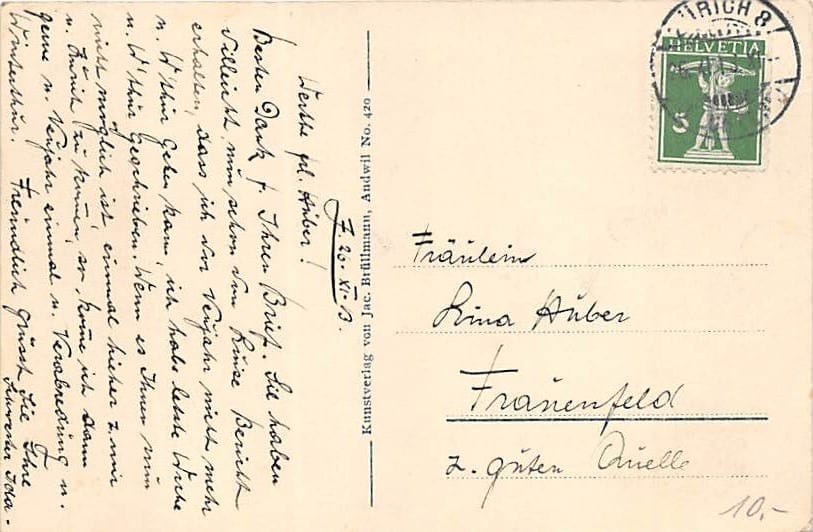 Z. 26. XI. 13.
Werthe frl. Hüber!
Besten Dank f. Ihren Brief. Sie haben
villeicht nün schon von Lüise Bericht
erhalten, dass ich vor Neüjahr nicht mehr
n. W'thür gehen kann, ich habe letzte Woche
n. W'thür geschrieben. Wenn es Ihnen nün
nicht möglich ist, einmal hieher z. mir
n. Zürich zü komen, so kome ich dann
gerne n. Neüjahr einmal n. Verabredüng n.
Winterthür. Freündlich grüsst Sie Ihre
Schwester Ida.
Kunstverlag von Jac. Brüllmann, Andwil No. 420
ÜRICH 8
HELVETIA
5
Fräülein
Lina Hüber
Fraüenfeld
z. güten Qüelle
10.-